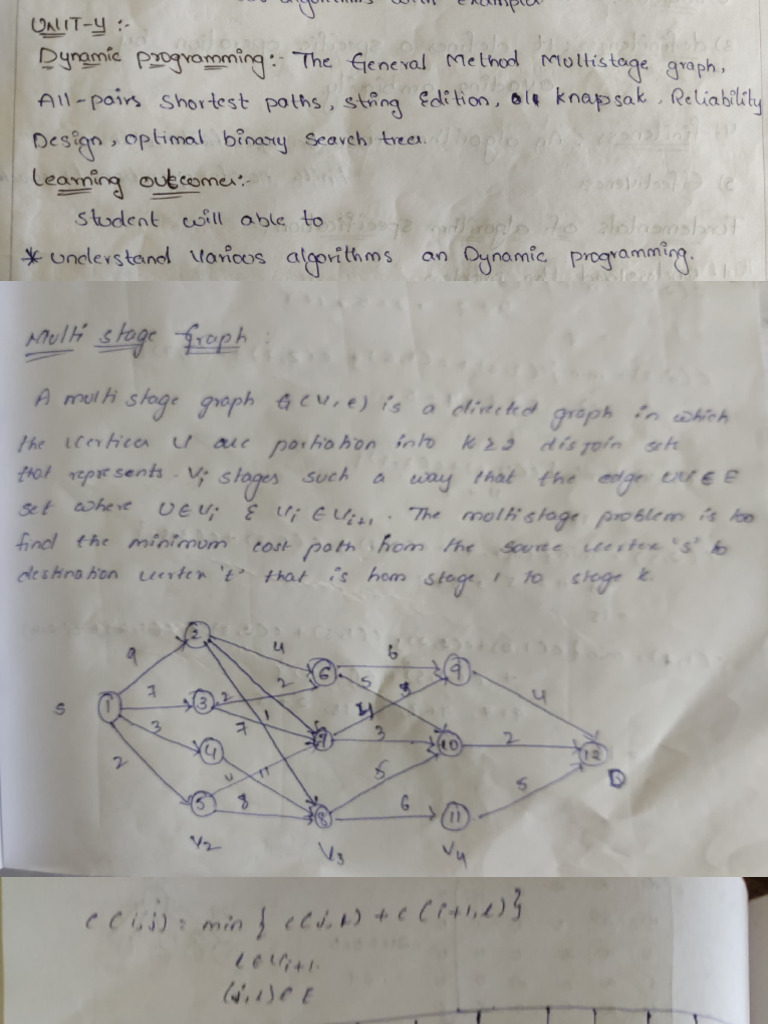 UNIT-4 :-
Dynamic programming:- The General Method Multistage graph,
All-pairs shortest paths, string Edition, 0/1 knapsak, Reliability
Design, optimal binary search trees.
Learning outcomes:-
Student will able to
* understand various algorithms an Dynamic programming.
Multi stage Graph :
A multi stage graph G(V,E) is a directed graph in which
the vertices V are partiation into K≥2 disjoin sets
that represents Vi stages such a way that the edge UV ∈ E
set where U∈Vi & Vi ∈ Vi+1. The moltistage problem is to
find the minimum cost path from the source vertex 's' to
destination vertex 't' that is from stage 1 to stage k.
2
9 4 6
6 9
7 2 2 5 4
S 1 3 1
3 7 4 3 2
4 7 10 12
2 11 5 5 D
5 8 8 6 11
V2 V3 V4
c(i,j) = min { c(j,l) + c(i+1,l)}
l∈Vi+1
(j,l)∈E